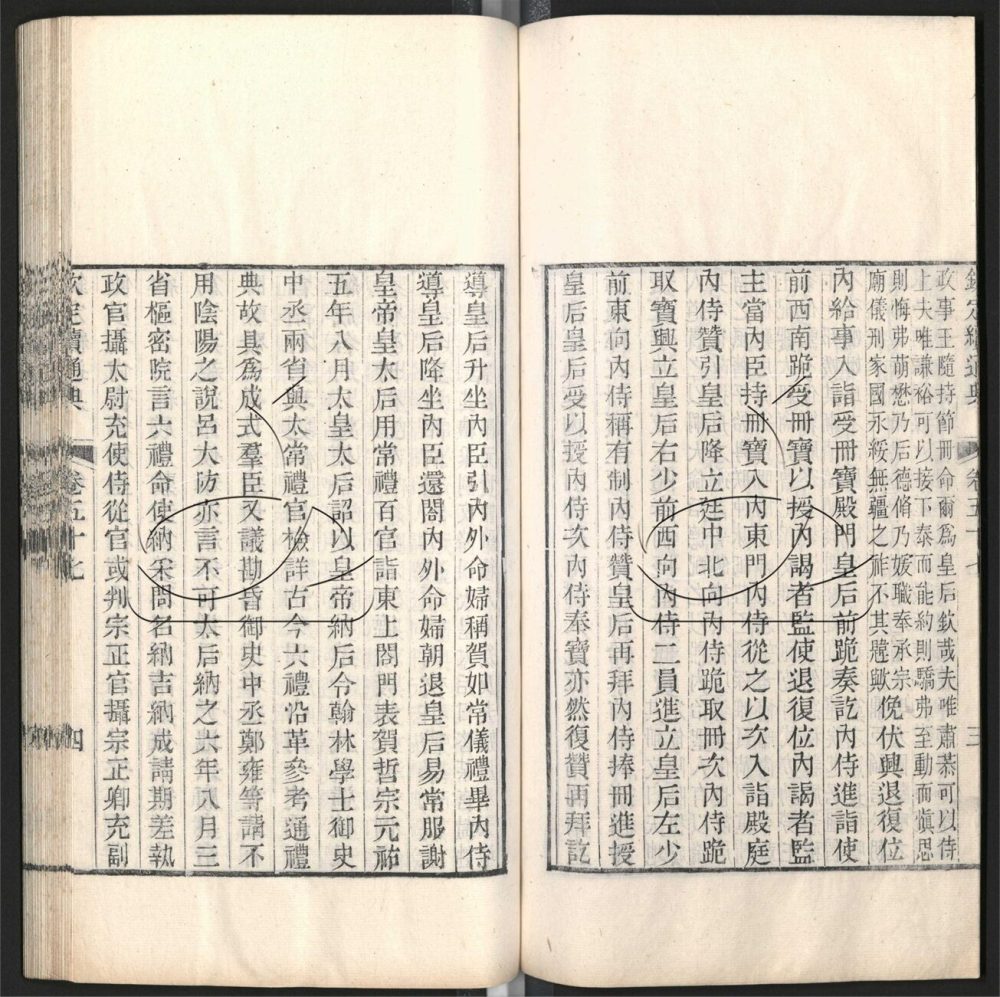 欽定續通典 卷五十七 三
政事王隨持節冊命爾爲皇后欽哉夫唯肅恭可以侍
上夫唯謙裕可以接下泰而能約則驕弗至動而愼思
則悔弗萌懋乃后德脩乃嬪職奉承宗
廟儀刑家國永綏無疆之祉不其韙歟俛伏興退復位
內給事入詣受冊寶殿門皇后前跪奏訖內侍進詣使
前西南跪受冊寶以授內謁者監使退復位內謁者監
主當內臣持冊寶入內東門內侍從之以次入詣殿庭
內侍贊引皇后降立廷中北向內侍跪取冊次內侍跪
取寶興立皇后右少前西向內侍二員進立皇后左少
前東向內侍稱有制內侍贊皇后再拜內侍捧冊進授
皇后皇后受以授內侍次內侍奉寶亦然復贊再拜訖
導皇后升坐內臣引內外命婦稱賀如常儀禮畢內侍
導皇后降坐內臣還閤內外命婦朝退皇后易常服謝
皇帝皇太后用常禮百官詣東上閤門表賀哲宗元祐
五年八月太皇太后詔以皇帝納后令翰林學士御史
中丞兩省與太常禮官檢詳古今六禮沿革參考通禮
典故具爲成式羣臣又議勘昏御史中丞鄭雍等請不
用陰陽之說呂大防亦言不可太后納之六年八月三
省樞密院言六禮命使納采問名納吉納成請期差執
政官攝太尉充使侍從官或判宗正官攝宗正卿充副
欽定續通典 卷五十七 四